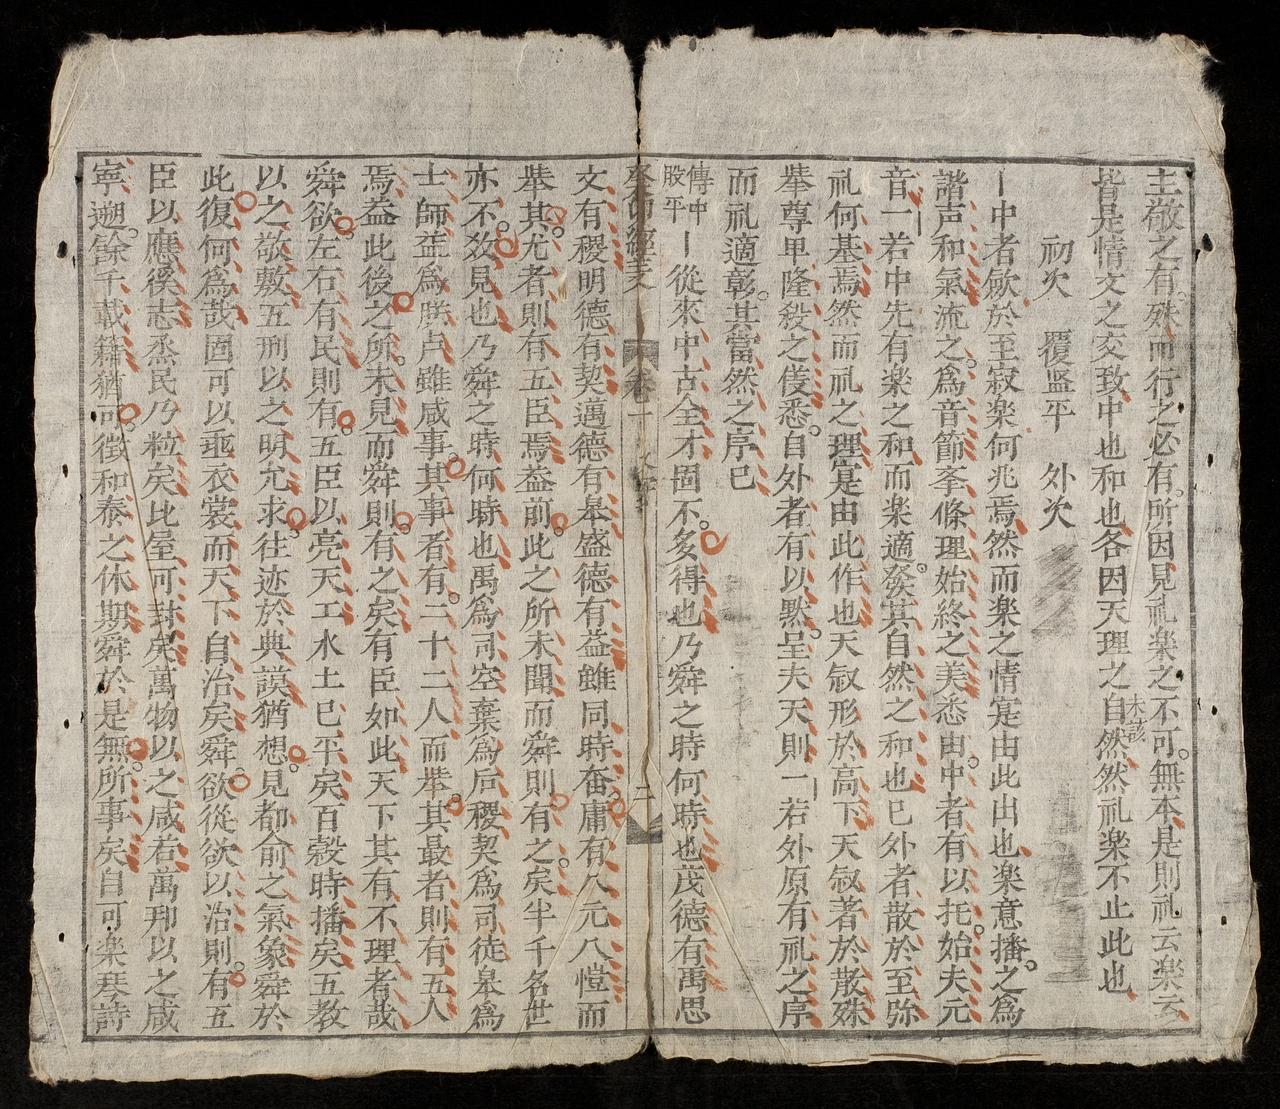 主敬之有殊而行之必有所因見礼楽之不可無本是則礼云楽云
皆是情文之交致中也和也各因天理之自然然礼楽不止此也
未該
初次 覆盟平 外次
丨中者歛於至寂楽何兆焉然而楽之情寔由此出也楽意播之為
諧声和氣流之為音節夆條理始終之美悉由中者有以托始夫元
音一若中先有楽之和而楽適發其自然之和也已外者散於至弥
礼何基焉然而礼之理寔是由此作也天叙形於高下天叙著於散殊
举尊卑隆殺之伎悉自外者有以黙呈夫天則一若外原有礼之序
而礼適彰其當然之序已
傳中
股平
丨從來中古全才啚不多得也乃舜之時何時也茂德有禹思
卷一
二
文有稷明德有契邁德有皋盛德有益雖同時奮庸有八元八愷而
举其尤者則有五臣焉益前此之所未聞而舜則有之矣半千名世
亦不效見也乃舜之時何時也禹為司空棄為后稷契為司徒皋為
士師益為朕虞雖咸事其事者有二十二人而举其最者則有五人
焉益此後之所未見而舜則有之矣有臣如此天下其有不理者哉
舜欲左右有民則有五臣以亮天工水土已平矣百穀時播矣五教
以之敬敷五刑以之明允求往迹於典謨猶想見都俞之氣象舜於
此復何為哉固可以垂衣裳而天下自治矣舜欲從欲以治則有五
臣以應徯志烝民乃粒矣比屋可封矣萬物以之咸若萬邦以之咸
寜遡餘千載籍猶可徵和泰之休期舜於是無所事矣自可楽琴詩